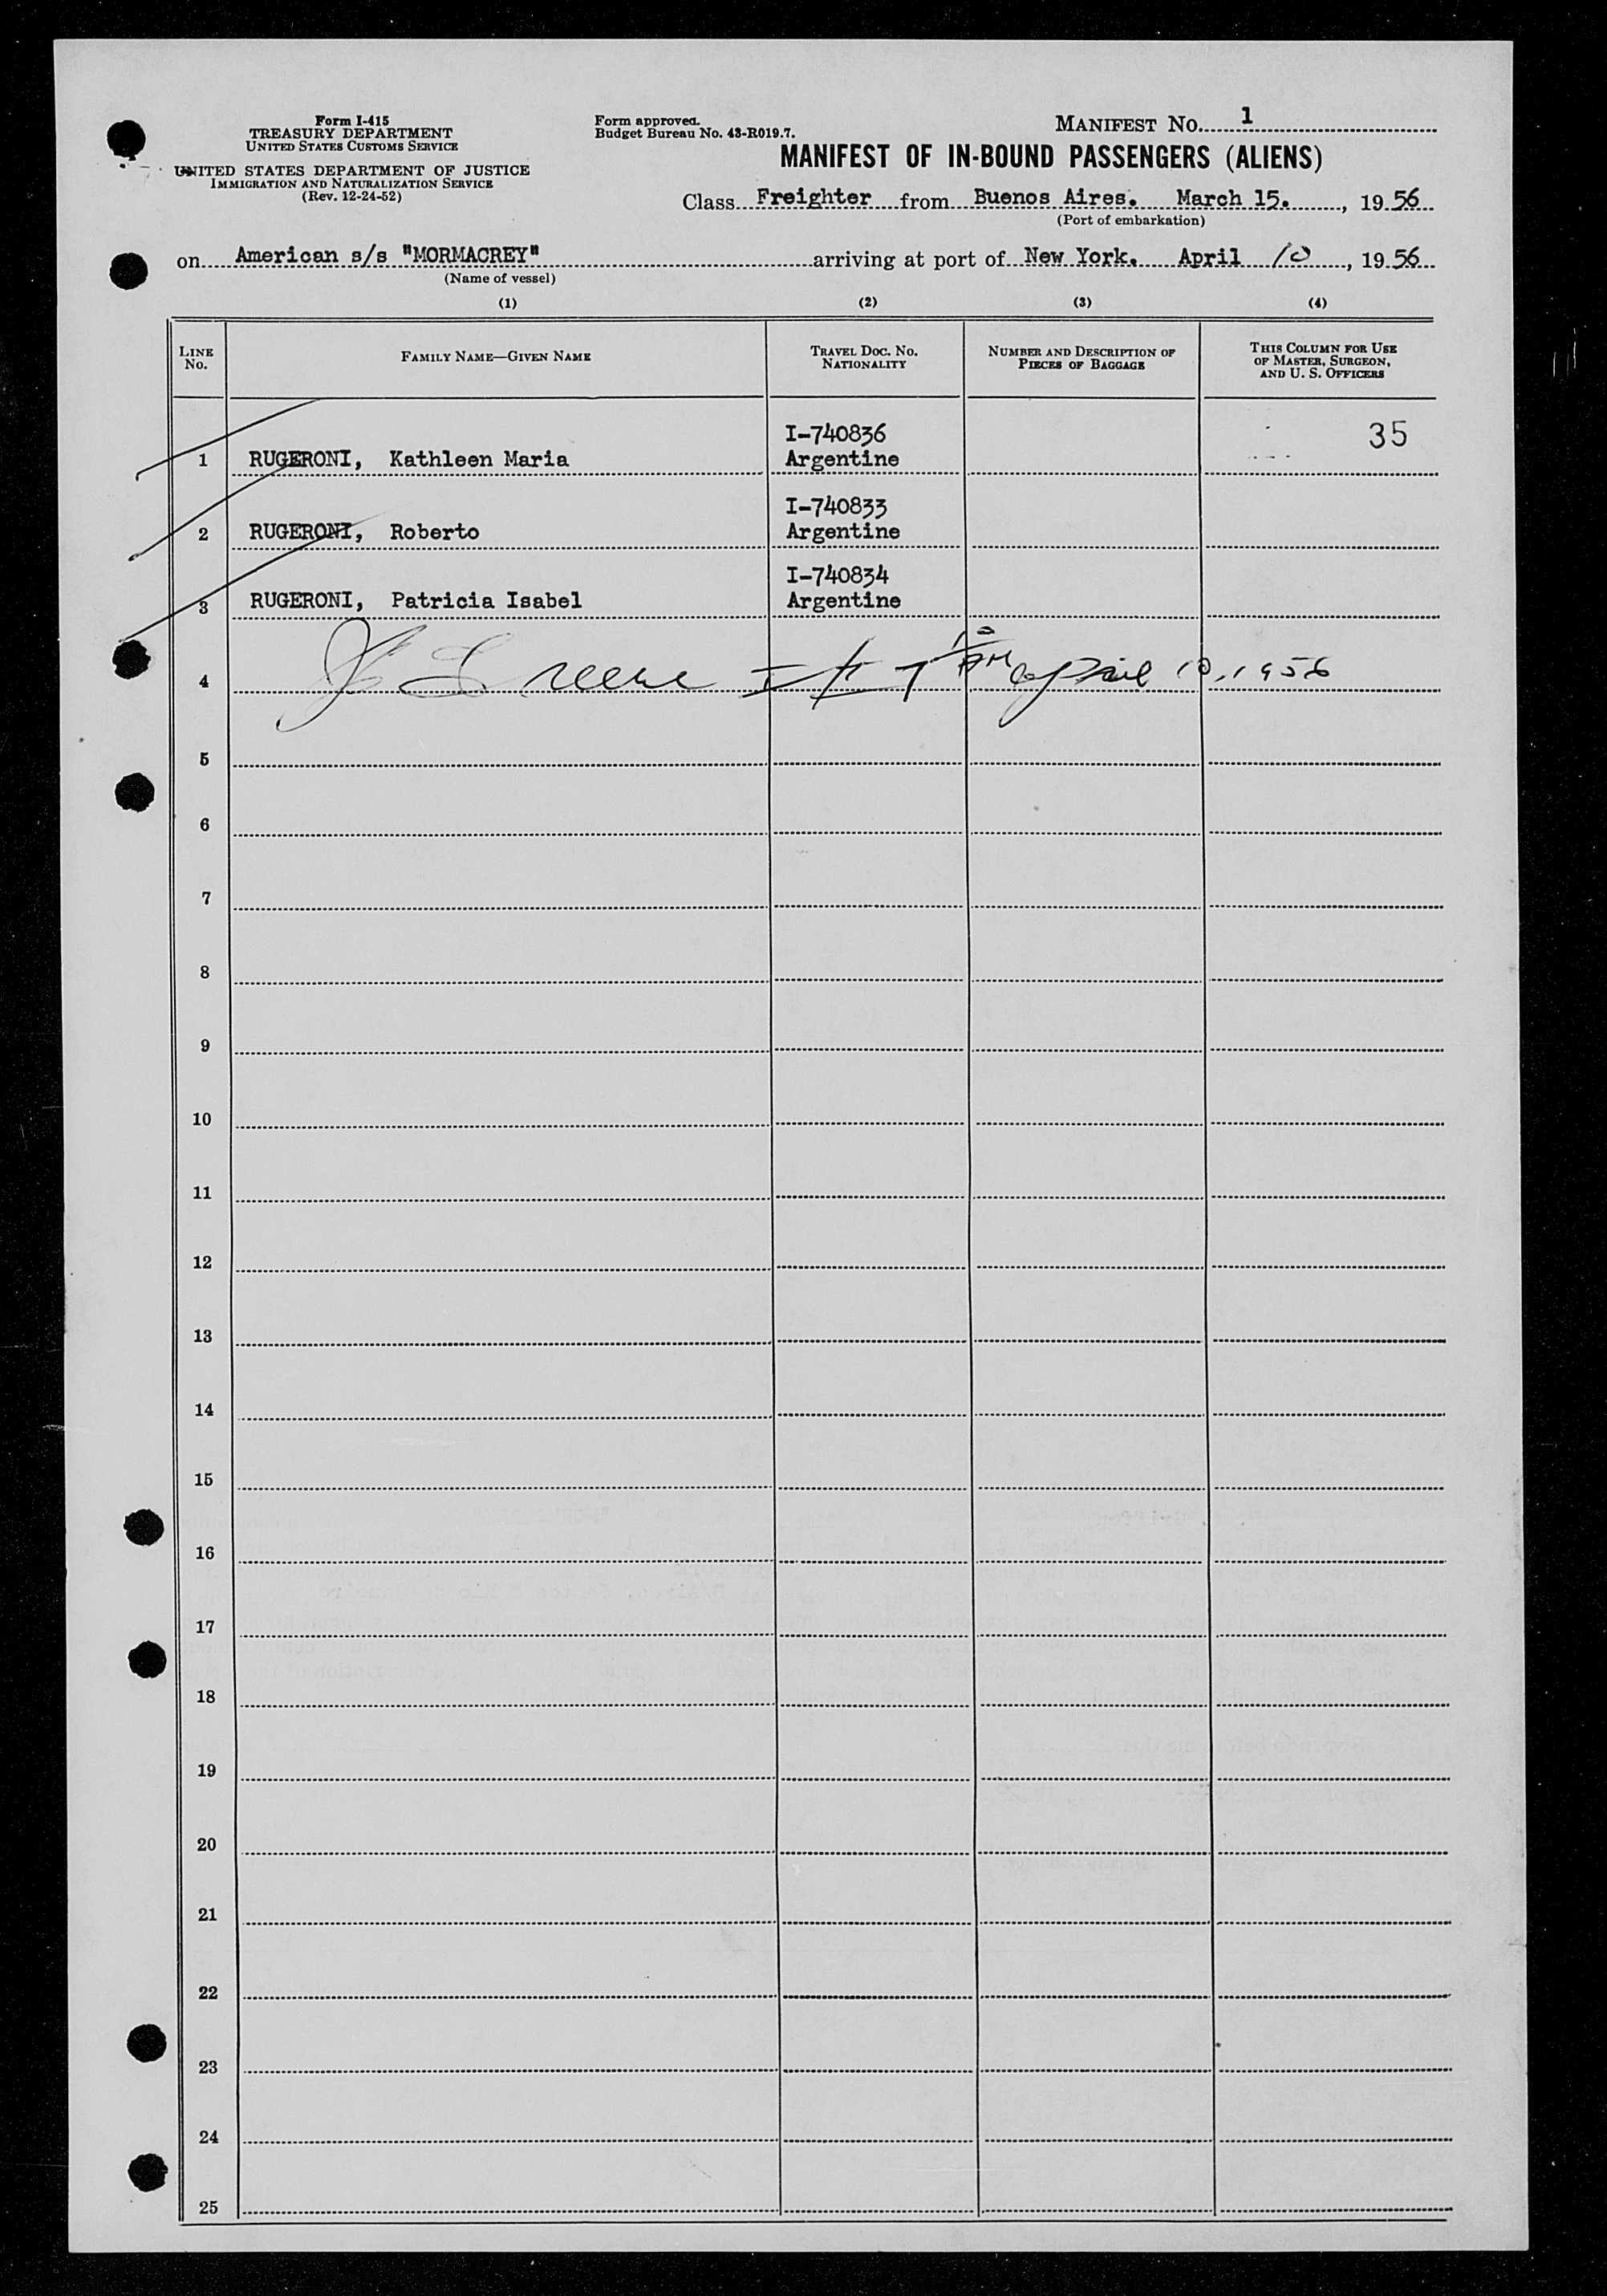 Form I-415
TREASURY DEPARTMENT
UNITED STATES CUSTOMS SERVICE
UNITED STATES DEPARTMENT OF JUSTICE
IMMIGRATION AND NATURALIZATION SERVICE
(Rev. 12-24-52)
Form approved.
Budget Bureau No. 43-R019.7.
MANIFEST NO. 1
MANIFEST OF IN-BOUND PASSENGERS (ALIENS)
Class Freighter from Buenos Aires. March 15. , 1956
(Port of embarkation)
on American s/s "MORMACREY" arriving at port of New York. April 10 , 1956
(Name of vessel)
(1) (2) (3) (4)
LINE No. FAMILY NAME—GIVEN NAME TRAVEL DOC. NO. NATIONALITY NUMBER AND DESCRIPTION OF PIECES OF BAGGAGE THIS COLUMN FOR USE OF MASTER, SURGEON, AND U. S. OFFICERS
I-740836 35
1 RUGERONI, Kathleen Maria Argentine
I-740833
2 RUGERONI, Roberto Argentine
I-740834
3 RUGERONI, Patricia Isabel Argentine
4 April 10, 1956
5
6
7
8
9
10
11
12
13
14
15
16
17
18
19
20
21
22
23
24
25